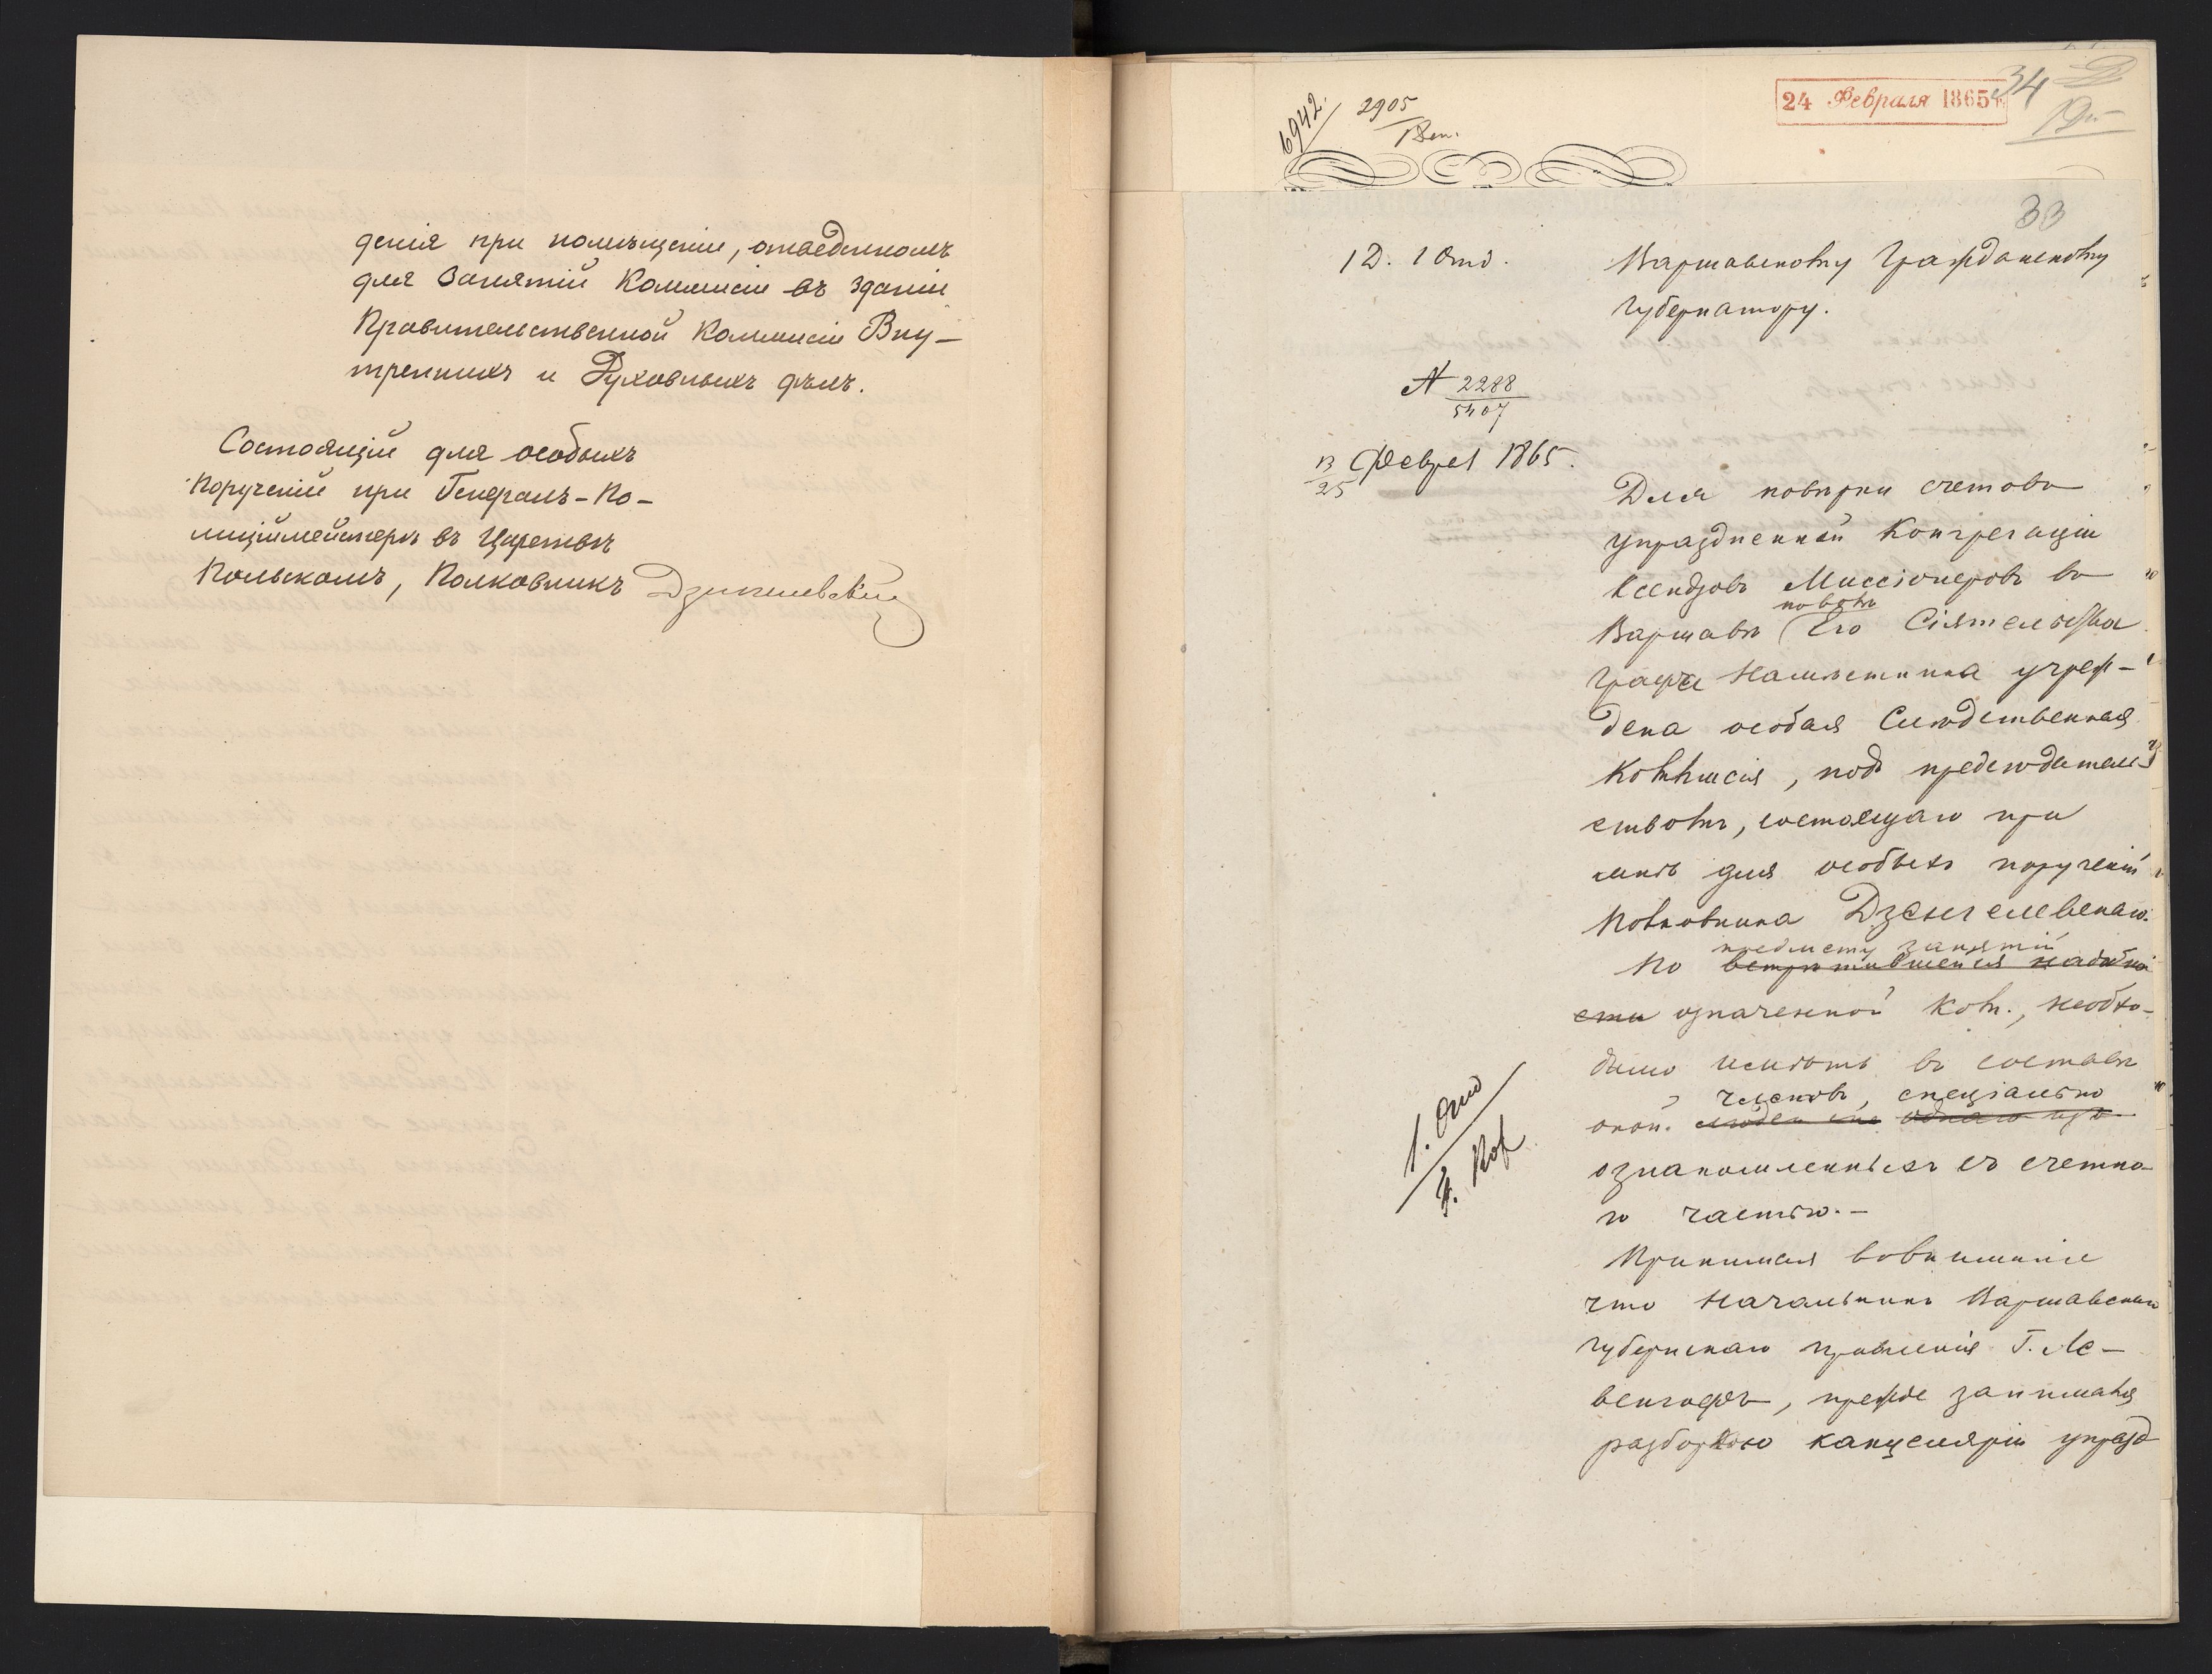 денія при помѣщеніи, отведенномъ
для занятій Коммисіи въ зданіи
Правительственной Коммисіи Вну-
треннихъ и Духовныхъ дѣлъ.
Состоящій для особыхъ
порученій при Генералъ-По-
лиціймейстерѣ въ Царствѣ
Польскомъ, Полковникъ
6942. 2905
24 Февраля 1865 34
33
1 Д. 1 Отд. Варшавскому Гражданскому
Губернатору.
N 2288
5407
13
25 Феврал 1865.
Для повѣрки счетовъ
упраздненной Конгрегаціи
Ксендзовъ Миссіонеровъ въ
Варшавѣ Его Сіятельства
Графа Намѣстника учреж-
дена особая Слѣдственная
Коммисія, подъ предсѣдатель
ствомъ, состоящаго при
мнѣ для особыхъ порученій
Полковника
предмету занятій
По встрѣтившейся надобно
сти означенной Ком., необхо-
димо имѣть въ составѣ
членовъ, спеціально
оной.
ознакомленныхъ съ счетно-
ю частью.-
Принимая во вниманіе
что Начальникъ Варшавскаго
Губернскаго правленія Г. Ле-
венгофъ, прежде занимался
разборкою канцеляріи упразд
1. Отд